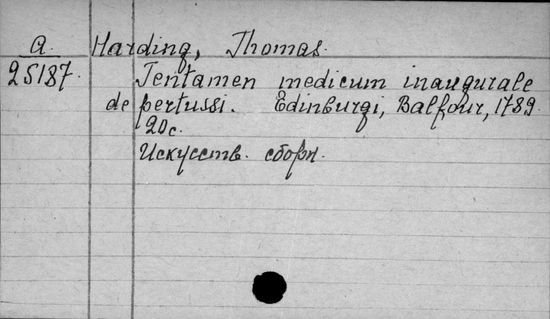 А Harding, Thomas.
25187. Tentamen medicum inaugurale
de pertussi. Edinburgi, Balfour, 1789.
20с.
Искусств. сборн.